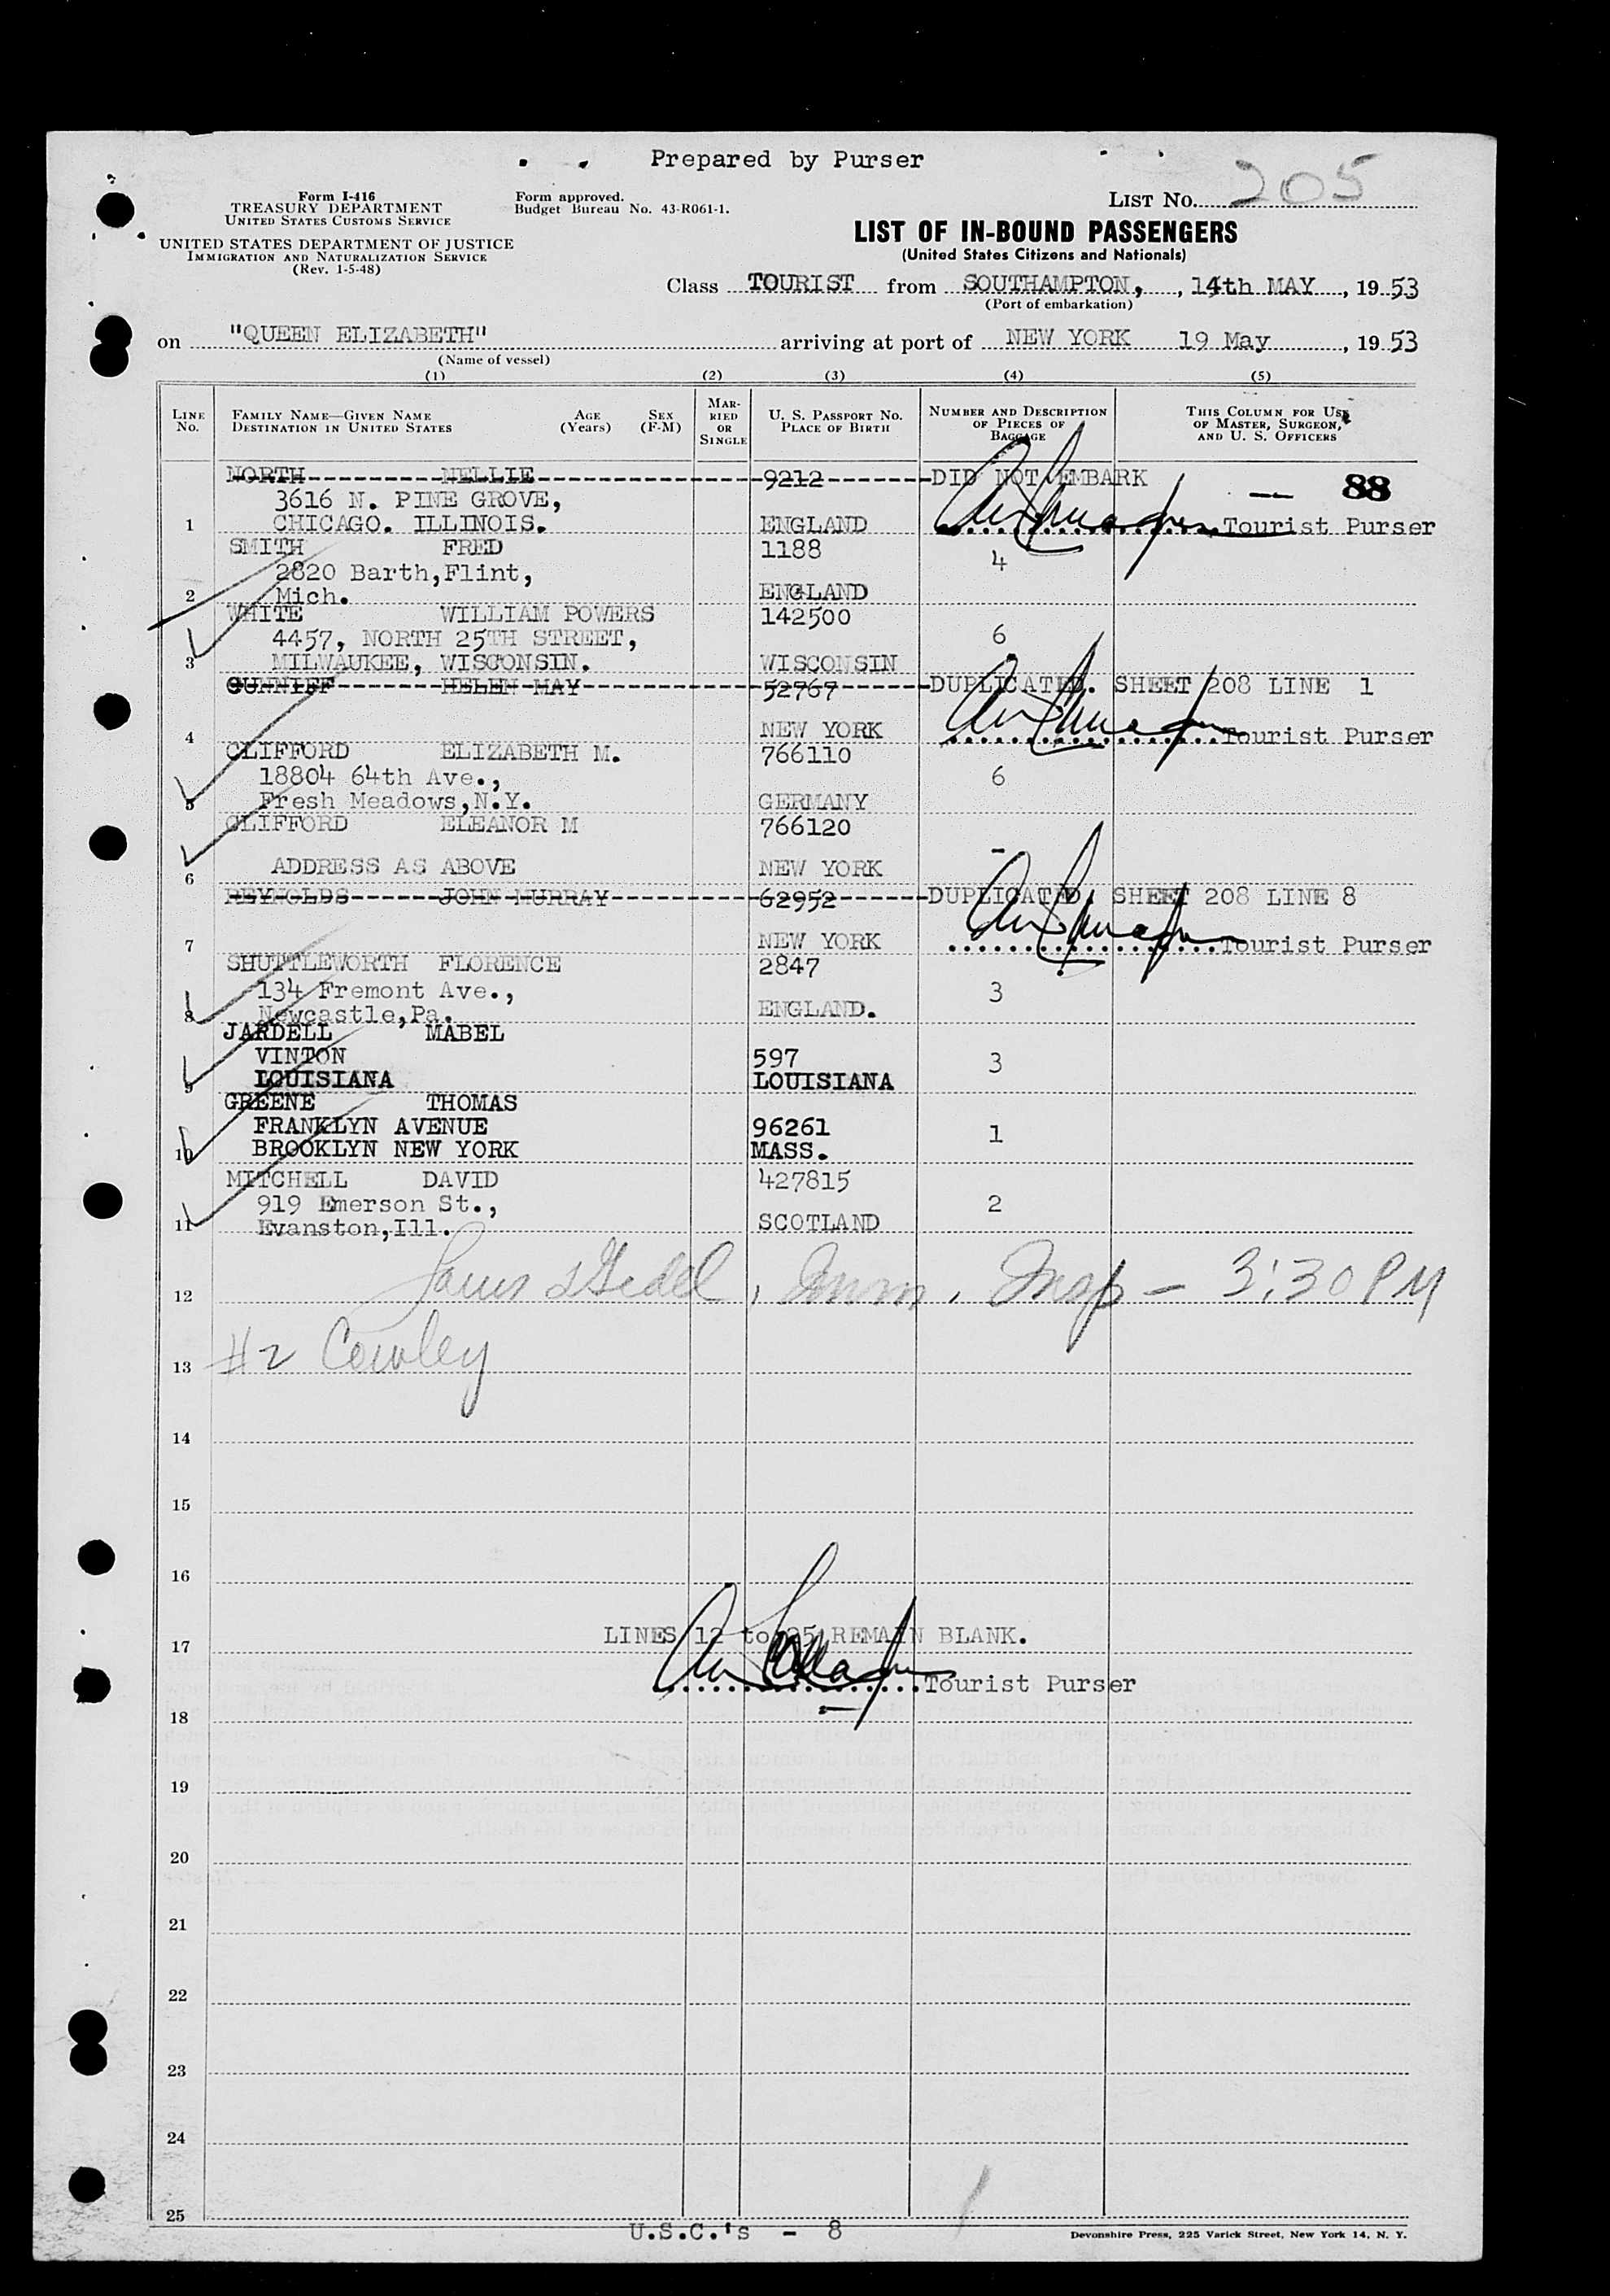 Prepared by Purser
Form I-416
TREASURY DEPARTMENT
UNITED STATES CUSTOMS SERVICE
UNITED STATES DEPARTMENT OF JUSTICE
IMMIGRATION AND NATURALIZATION SERVICE
(Rev. 1-5-48)
Form approved.
Budget Bureau No. 43-R061-1.
LIST NO. 205
LIST OF IN-BOUND PASSENGERS
(United States Citizens and Nationals)
Class TOURIST from SOUTHAMPTON, , 14th MAY , 19 53
(Port of embarkation)
on "QUEEN ELIZABETH" arriving at port of NEW YORK 19 May , 19 53
(Name of vessel)
(1) (2) (3) (4) (5)
LINE NO.
FAMILY NAME—GIVEN NAME AGE SEX
DESTINATION IN UNITED STATES (Years) (F-M)
MARRIED OR SINGLE
U. S. PASSPORT NO.
PLACE OF BIRTH
NUMBER AND DESCRIPTION
OF PIECES OF
BAGGAGE
THIS COLUMN FOR USE
OF MASTER, SURGEON,
AND U. S. OFFICERS
NORTH NELLIE 9212 DID NOT EMBARK
3616 N. PINE GROVE, — 88
1 CHICAGO. ILLINOIS. ENGLAND Tourist Purser
SMITH FRED 1188
2820 Barth,Flint, 4
2 Mich. ENGLAND
WHITE WILLIAM POWERS 142500
4457, NORTH 25TH STREET, 6
3 MILWAUKEE, WISCONSIN. WISCONSIN
GUNNIFF HELEN MAY 52767 DUPLICATED. SHEET 208 LINE 1
4 NEW YORK Tourist Purser
CLIFFORD ELIZABETH M. 766110
18804 64th Ave., 6
5 Fresh Meadows,N.Y. GERMANY
CLIFFORD ELEANOR M 766120
-
6 ADDRESS AS ABOVE NEW YORK
REYNOLDS JOHN MURRAY 62952 DUPLICATED. SHEET 208 LINE 8
7 NEW YORK Tourist Purser
SHUTTLEWORTH FLORENCE 2847
134 Fremont Ave., 3
8 Newcastle,Pa. ENGLAND.
JARDELL MABEL
VINTON 597 3
9 LOUISIANA LOUISIANA
GREENE THOMAS
FRANKLYN AVENUE 96261 1
10 BROOKLYN NEW YORK MASS.
MITCHELL DAVID 427815
919 Emerson St., 2
11 Evanston,Ill. SCOTLAND
12 , Imm. Insp — 3:30 PM
13 #2 Cowley
14
15
16
17 LINES 12 to 25 REMAIN BLANK.
Tourist Purser
18
19
20
21
22
23
24
25
U.S.C.'s - 8
Devonshire Press, 225 Varick Street, New York 14, N. Y.